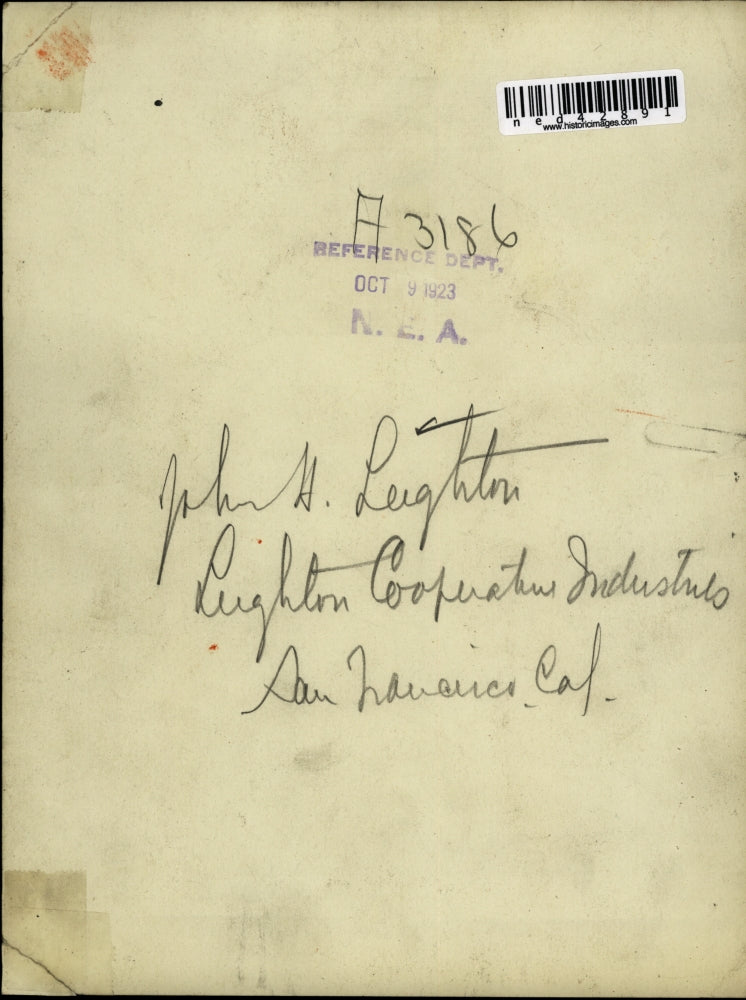 ned42891
www.historicimages.com
A 3186
REFERENCE DEPT.
OCT 9 1923
N. E. A.
John H. Leighton
Leighton Cooperative Industries
San Francisco, Cal.